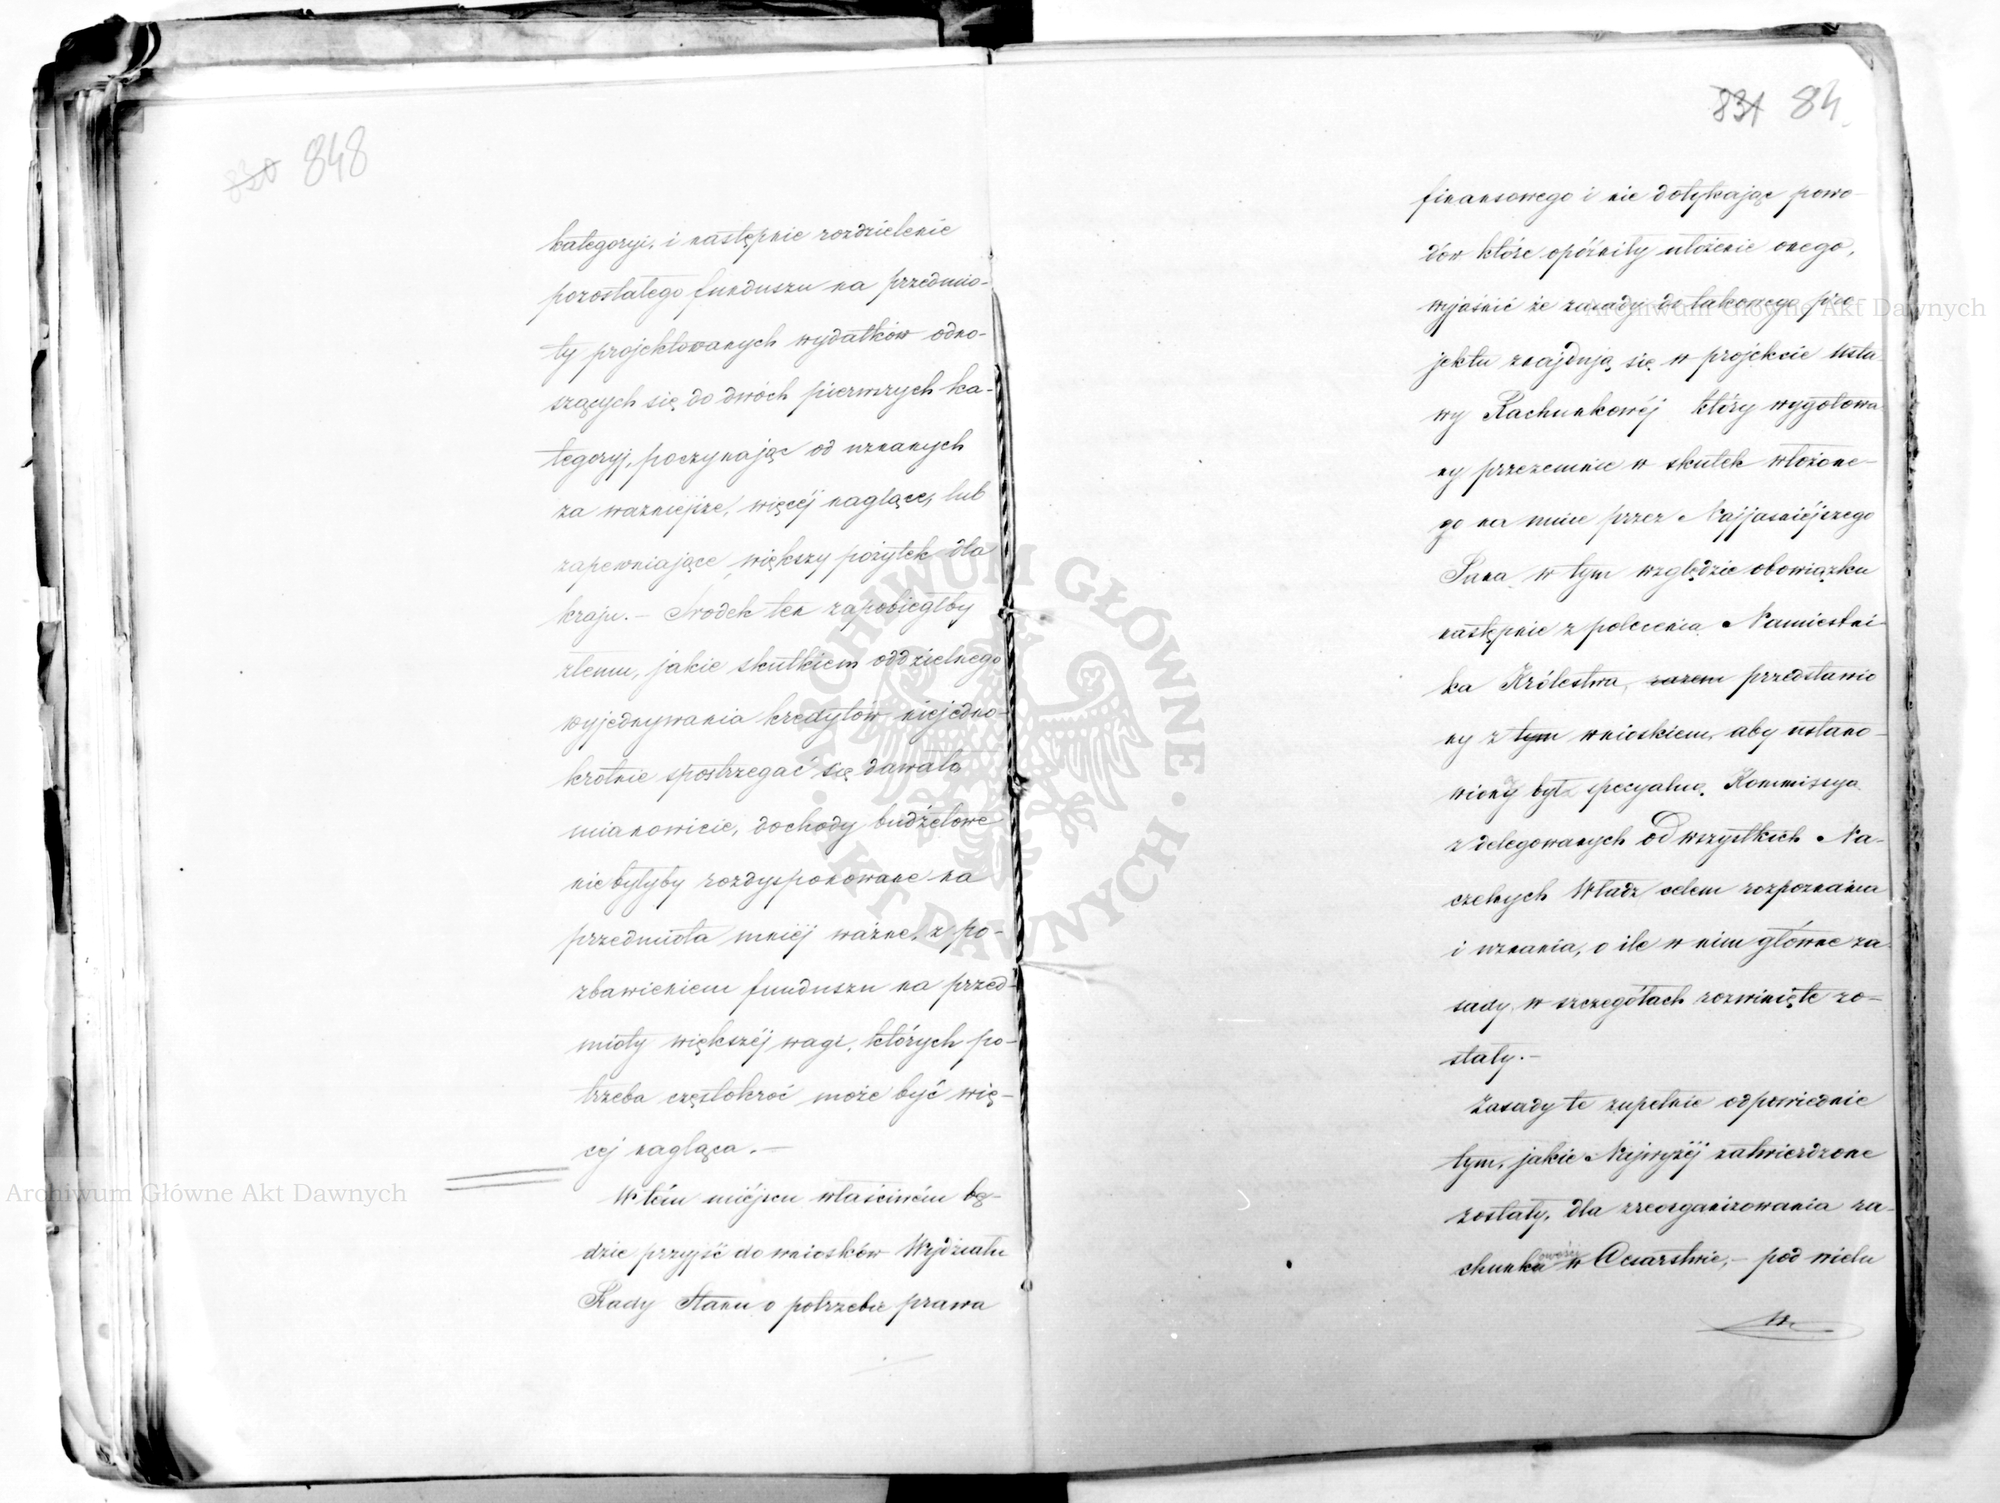 848
kategoryi, i następnie rozdzielenie
pozostałego funduszu na przedmio-
ty projektowanych wydatków odno-
szących się do dwóch pierwszych ka-
tegoryj, poczynając od uznanych
za ważniejsze, więcéj naglące, lub
zapewniające większy pożytek dla
kraju. – Środek ten zapobiegłby
złemu, jakie skutkiem oddzielnego
wyjednywania kredytów niejedno-
krotnie spostrzegać się dawało
mianowicie, dochody budżetowe
nie byłyby rozdysponowane na
przedmiota mniéj ważne, z po-
zbawieniem funduszu na przed-
mioty większéj wagi, których po-
trzeba częstokroć może być wię-
cej nagląca. –
W tém miéjscu właściwém bę-
dzie przyjść do wniosków Wydziału
Rady Stanu o potrzebie prawa
831 84
finansowego i nie dotykając powo-
dów które opóźniły ułożenie onego,
wyjaśnić że zasady do takowego pro-
jektu znajdują się w projekcie Usta
wy Rachunkowéj który wygotowa
ny przezemnie w skutek włożone-
go na mnie przez Najjaśniéjszego
Pana w tym względzie obowiązku
następnie z polecenia Namiestni-
ka Królestwa, razem przedstawio
ny z tym wnioskiem, aby ustano-
wioną była specyalna Kommissya
z delegowanych od wszystkich Na-
czelnych Władz celem rozpoznania
i uznania, o ile w nim główne za
sady w szczegółach rozwinięte zo-
stały. –
Zasady te zupełnie odpowiednie
tym, jakie Najwyżéj zatwierdzone
zostały, dla zreorganizowania ra-
chunkowości w Cesarstwie, – pod wielu
Archiwum Główne Akt Dawnych
Archiwum Główne Akt Dawnych
ARCHIWUM GŁÓWNE · AKT DAWNYCH ·